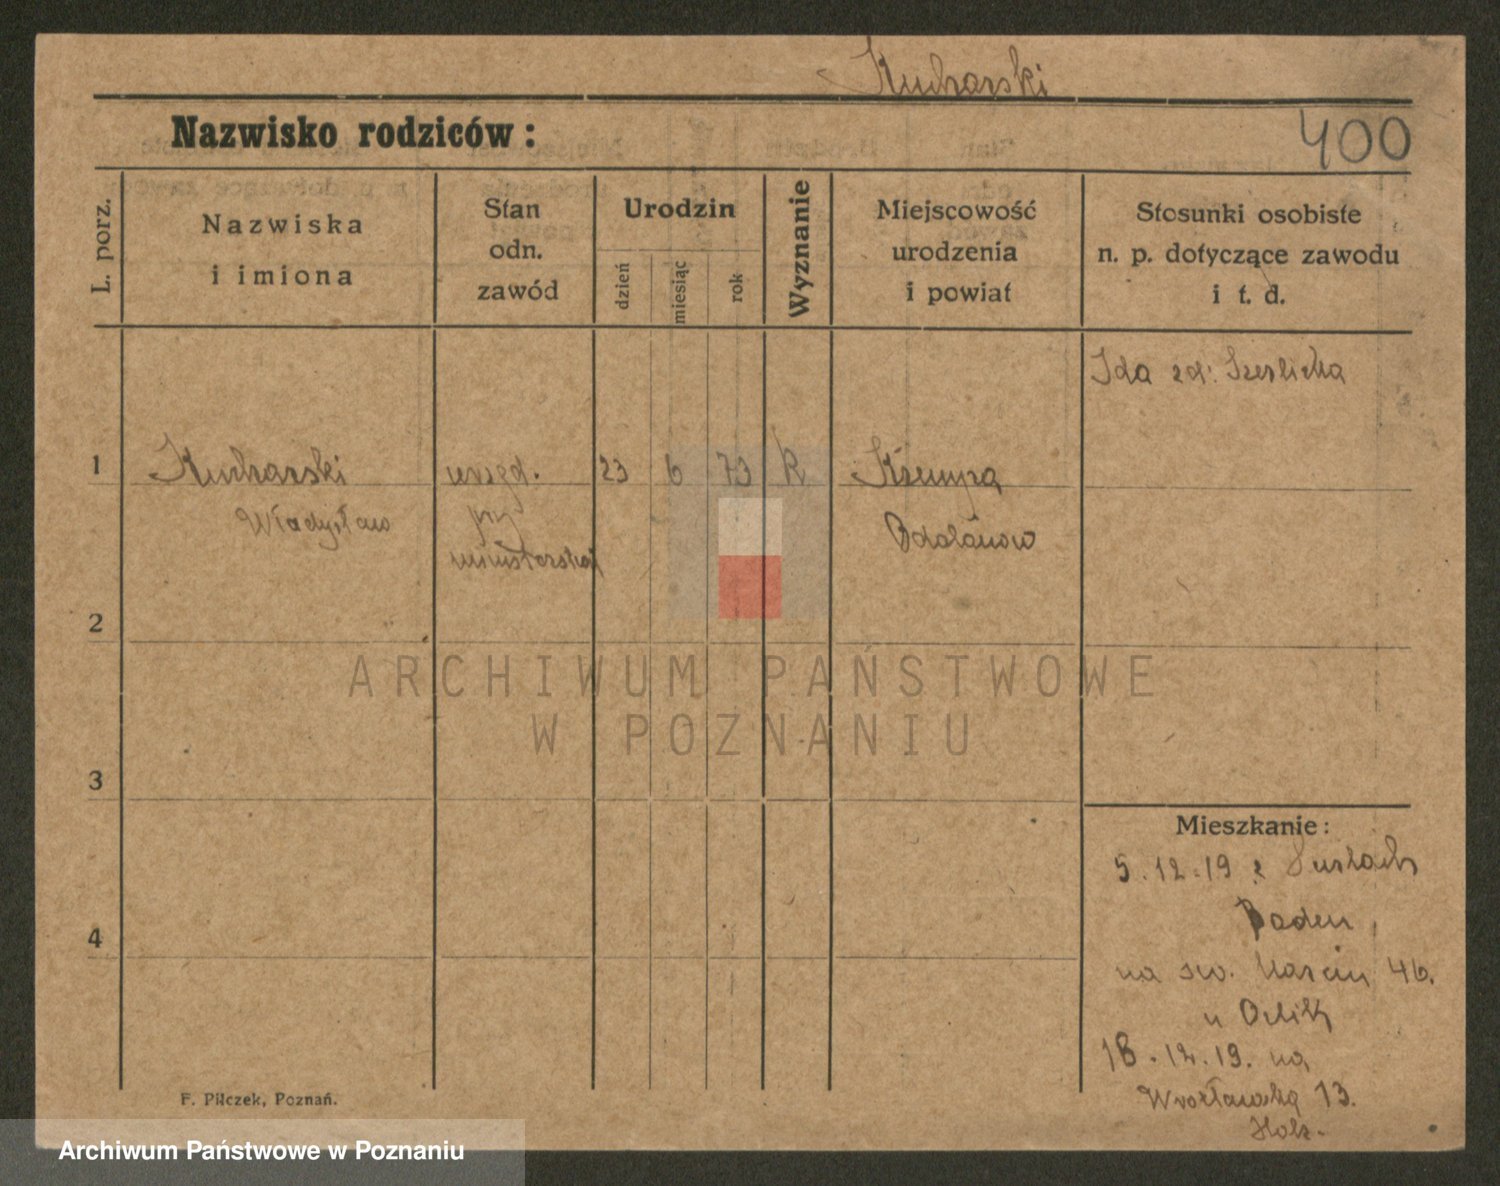 Kucharski
Nazwisko rodziców:
400
L. porz.
Nazwiska
i imiona
Stan
odn.
zawód
Urodzin
dzień
miesiąc
rok
Wyznanie
Miejscowość
urodzenia
i powiat
Stosunki osobiste
n. p. dotyczące zawodu
i t. d.
Ida zd:
1
Kucharski
urzęd.
23
6
73
R
Ksempa
Władysław
przy
Odolanow
2
ARCHIWUM PAŃSTWOWE
W POZNANIU
3
Mieszkanie:
5.12.19 z
Baden
4
na sw. Marcin 46.
u Orlik
18.12.19. na
Wrocławską 13.
F. Pilczek, Poznań.
Archiwum Państwowe w Poznaniu